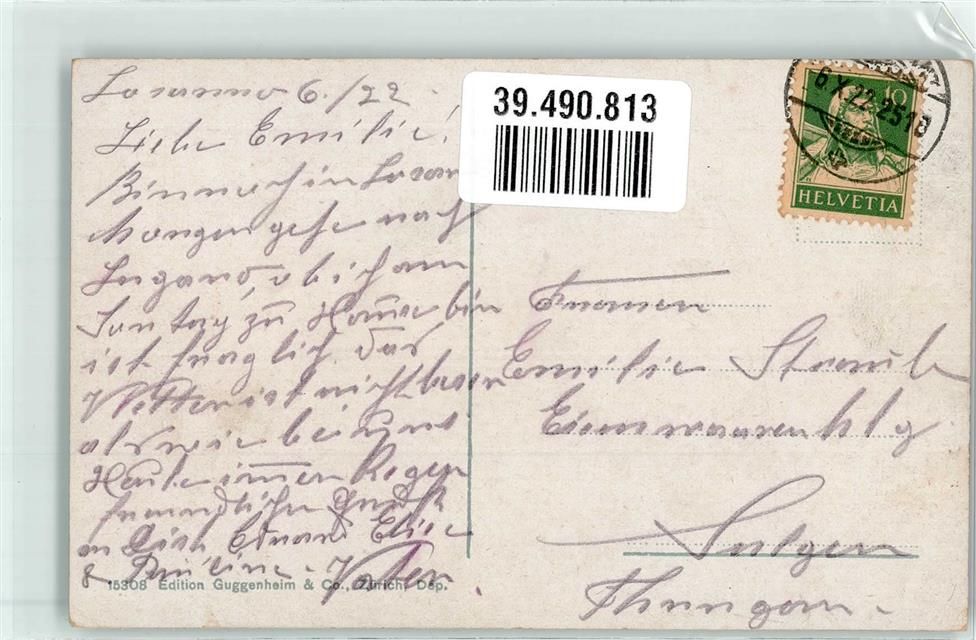 Locarno 6./22.
Liebe Emilie!
Bin noch in Locarn
Morgen gehe nach
Lugano, ob ich am
Sontag zu Hause bin
ist fraglich das
Wetter ist nicht besser
als wie bei uns
Heute immer Regen
freundliche Grüße
an Dich Eduard Elise
& Pauline. Vater.
15308 Edition Guggenheim & Co., Zürich, Dep.
39.490.813
6.X.22-23
10
HELVETIA
Frauen
Emilie Straub
Eisenwarenhlg
Sulgen
Thurgau.